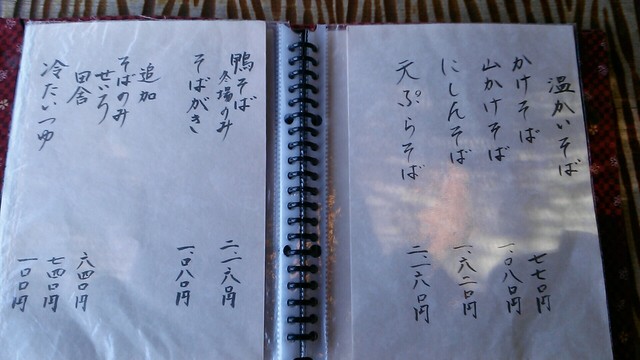 温かいそば
かけそば 七七〇円
山かけそば 一、〇八〇円
にしんそば 一、六二〇円
天ぷらそば 二、一六〇円
鴨そば 二、一六〇円
冬場のみ
そばがき 一、〇八〇円
追加
そばのみ
せいろ 六四〇円
田舎 七四〇円
冷たいつゆ 一〇〇円